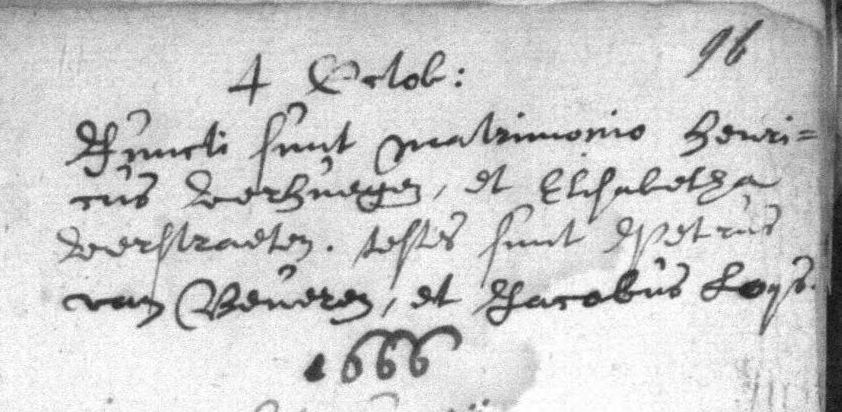 96
4 Octob:
Juncti sunt matrimonio Henri=
cus verhuegen, et Elisabetha
verstraeten. testes sunt Petrus
van Beveren, et Jacobus Loys.
1666